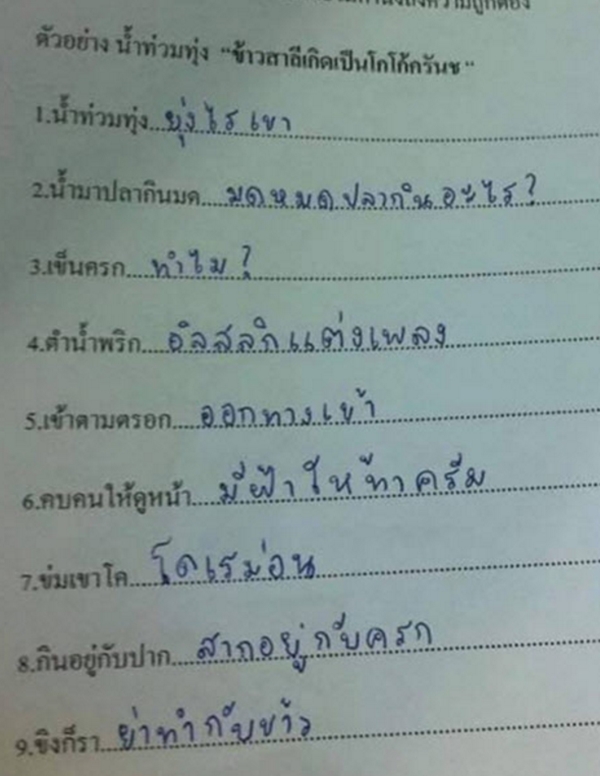 ตัวอย่าง น้ำท่วมทุ่ง "ข้าวสาลีเกิดเป็นโกโก้ครันช"
1.น้ำท่วมทุ่ง...ยุ่งไรเขา
2.น้ำมาปลากินมด...มดหมดปลากินอะไร?
3.เข็นครก...ทำไม?
4.ตำน้ำพริก...อัสสลิกแต่งเพลง
5.เข้าตามตรอก...ออกทางเข้า
6.คบคนให้ดูหน้า...มีฝ้าให้ทาครีม
7.ข่มเขาโค...โดเรม่อน
8.กินอยู่กับปาก...สากอยู่กับครก
9.ขิงก็รา...ย่าทำกับข้าว